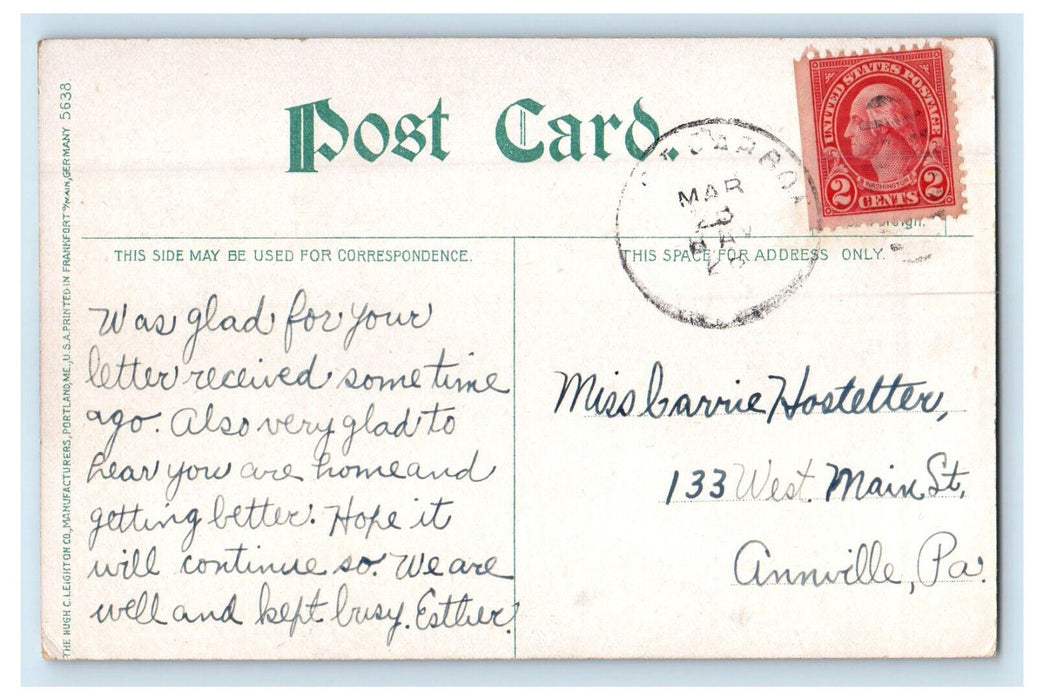 Post Card.
UNITED STATES POSTAGE
WASHINGTON
2 CENTS 2
MAR
THIS SIDE MAY BE USED FOR CORRESPONDENCE.
THIS SPACE FOR ADDRESS ONLY.
Was glad for your
letter received some time
ago. Also very glad to
hear you are home and
getting better. Hope it
will continue so. We are
well and kept busy. Esther.
Miss Carrie Hostetter,
133 West Main St,
Annville, Pa.
THE HUGH C. LEIGHTON CO., MANUFACTURERS, PORTLAND, ME., U.S.A. PRINTED IN FRANKFORT o/MAIN, GERMANY 5638.